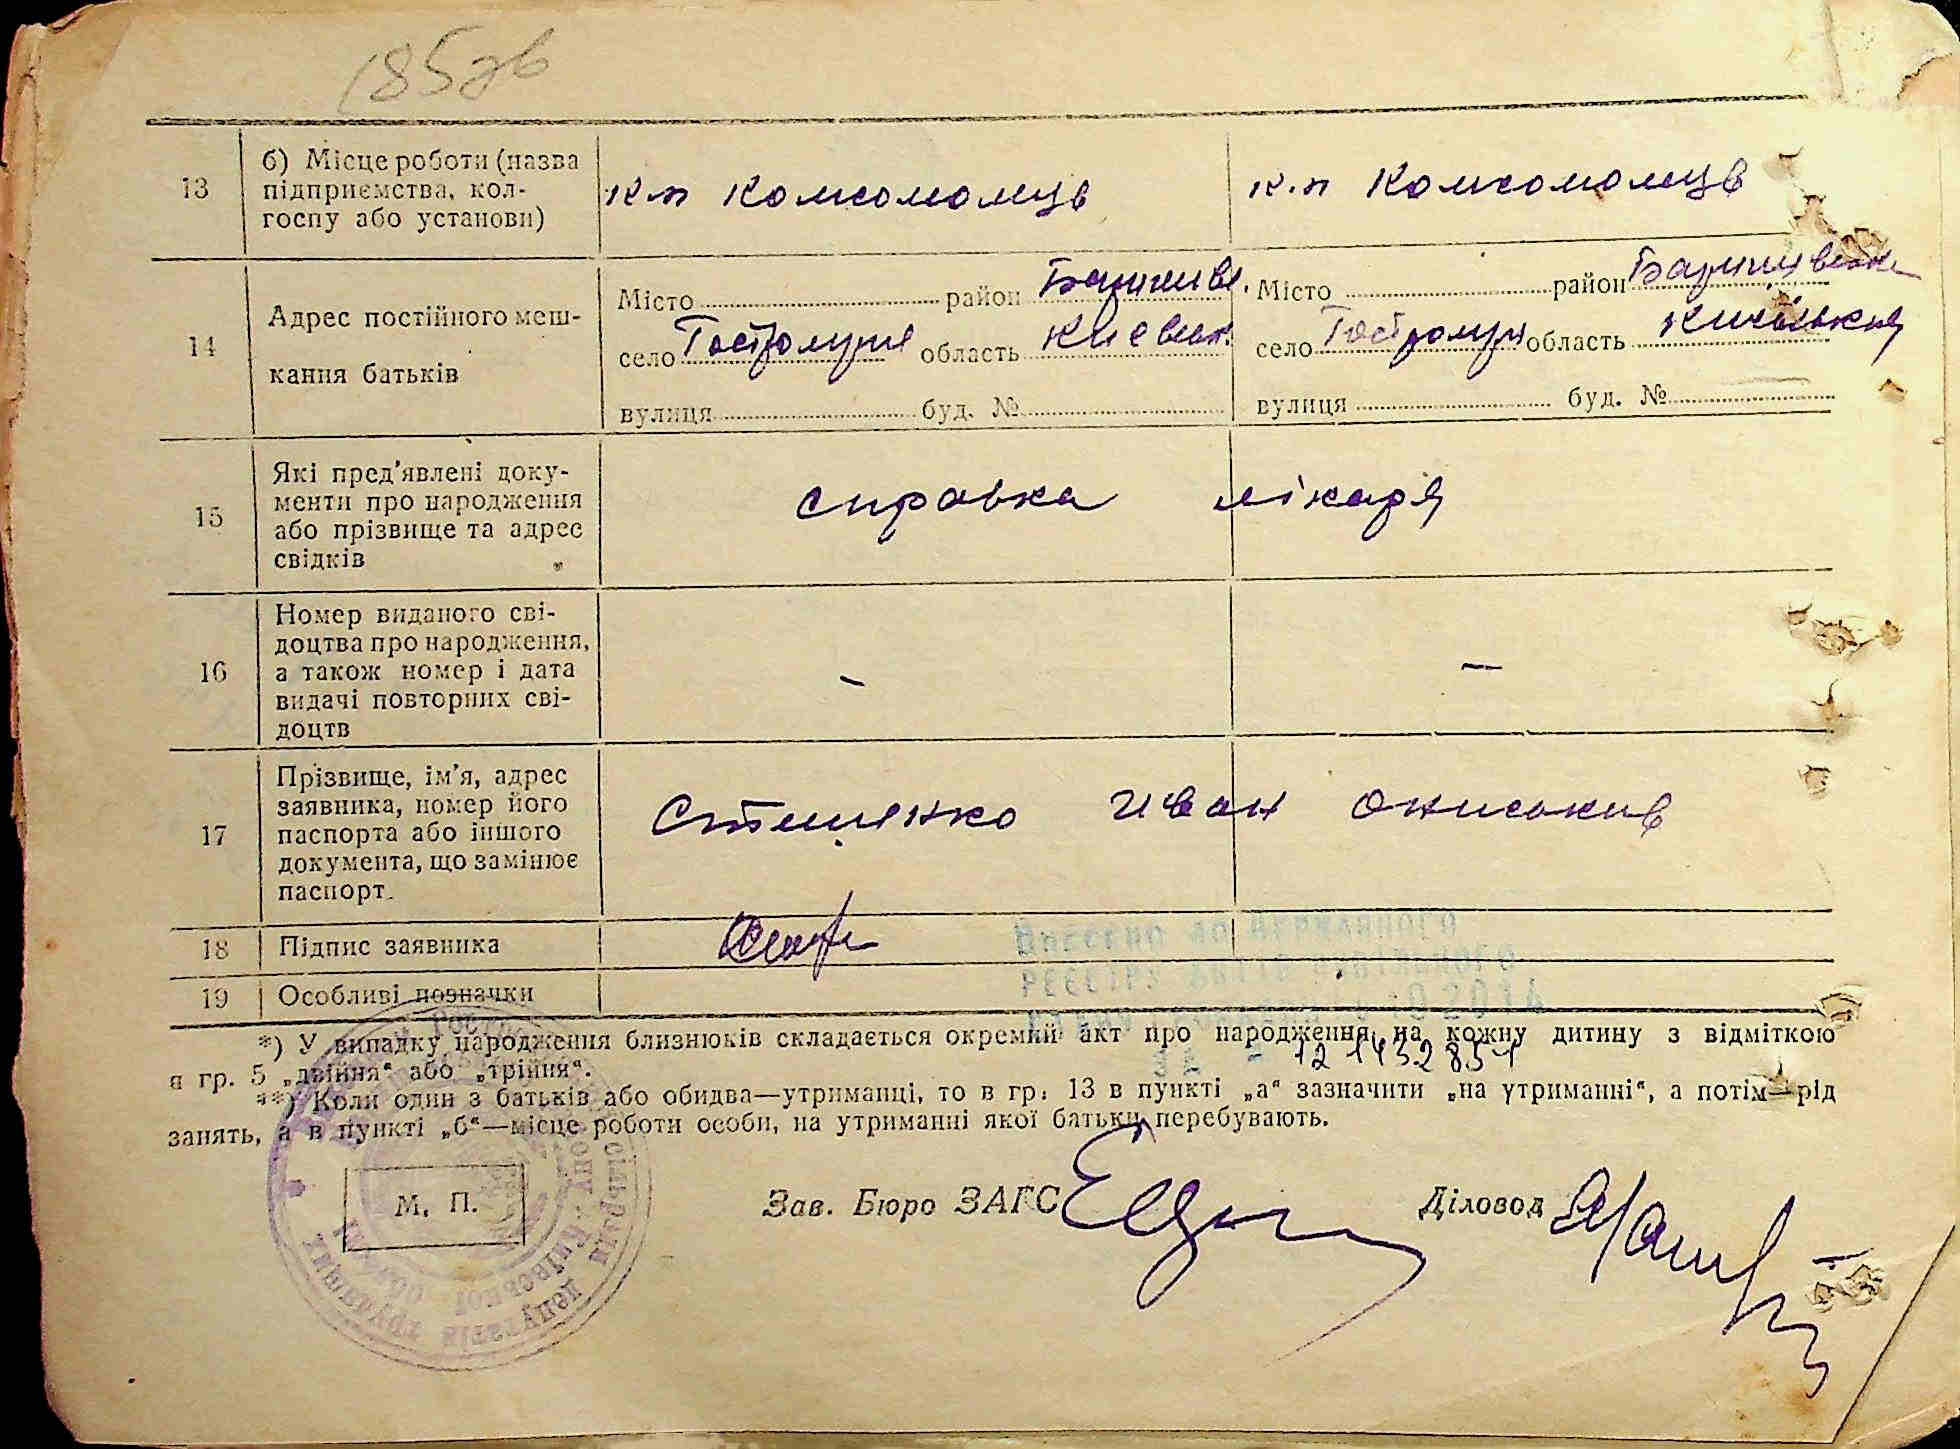 185зв
13
б) Місце роботи (назва
підприємства, кол-
госпу або установи)
к-п Комсомолець
к.п Комсомолець
14
Адрес постійного меш-
кання батьків
Місто район Баришівс.
село Гостролуччя область Киевск.
вулиця буд. №
Місто район Баришівськ
село Гостролуч область Київська
вулиця буд. №
15
Які пред'явлені доку-
менти про народження
або прізвище та адрес
свідків
справка лікаря
16
Номер виданого сві-
доцтва про народження,
а також номер і дата
видачі повторних сві-
доцтв
–
–
17
Прізвище, ім'я, адрес
заявника, номер його
паспорта або іншого
документа, що замінює
паспорт.
Стешенко Иван Ониськив
18
Підпис заявника
19
Особливі позначки
Внесено до Державного
реєстру актів цивільного
*) У випадку народження близнюків складається окремий акт про народження на кожну дитину з відміткою
в гр. 5 „двійня“ або „трійня“.
**) Коли один з батьків або обидва—утриманці, то в гр. 13 в пункті „а“ зазначити „на утриманні“, а потім—рід
занять, а в пункті „б“—місце роботи особи, на утриманні якої батьки перебувають.
М. П.
Зав. Бюро ЗАГС
Діловод